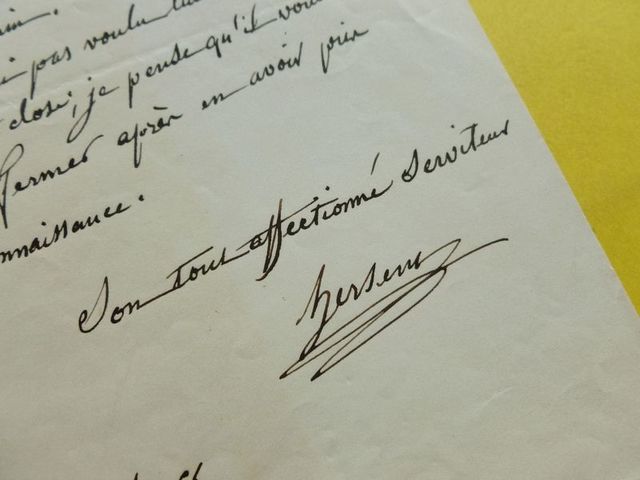 pas voulu
close, je pense qu'il vou
fermer après en avoir pris
nnaissance.
Son tout affectionné Serviteur
hersent